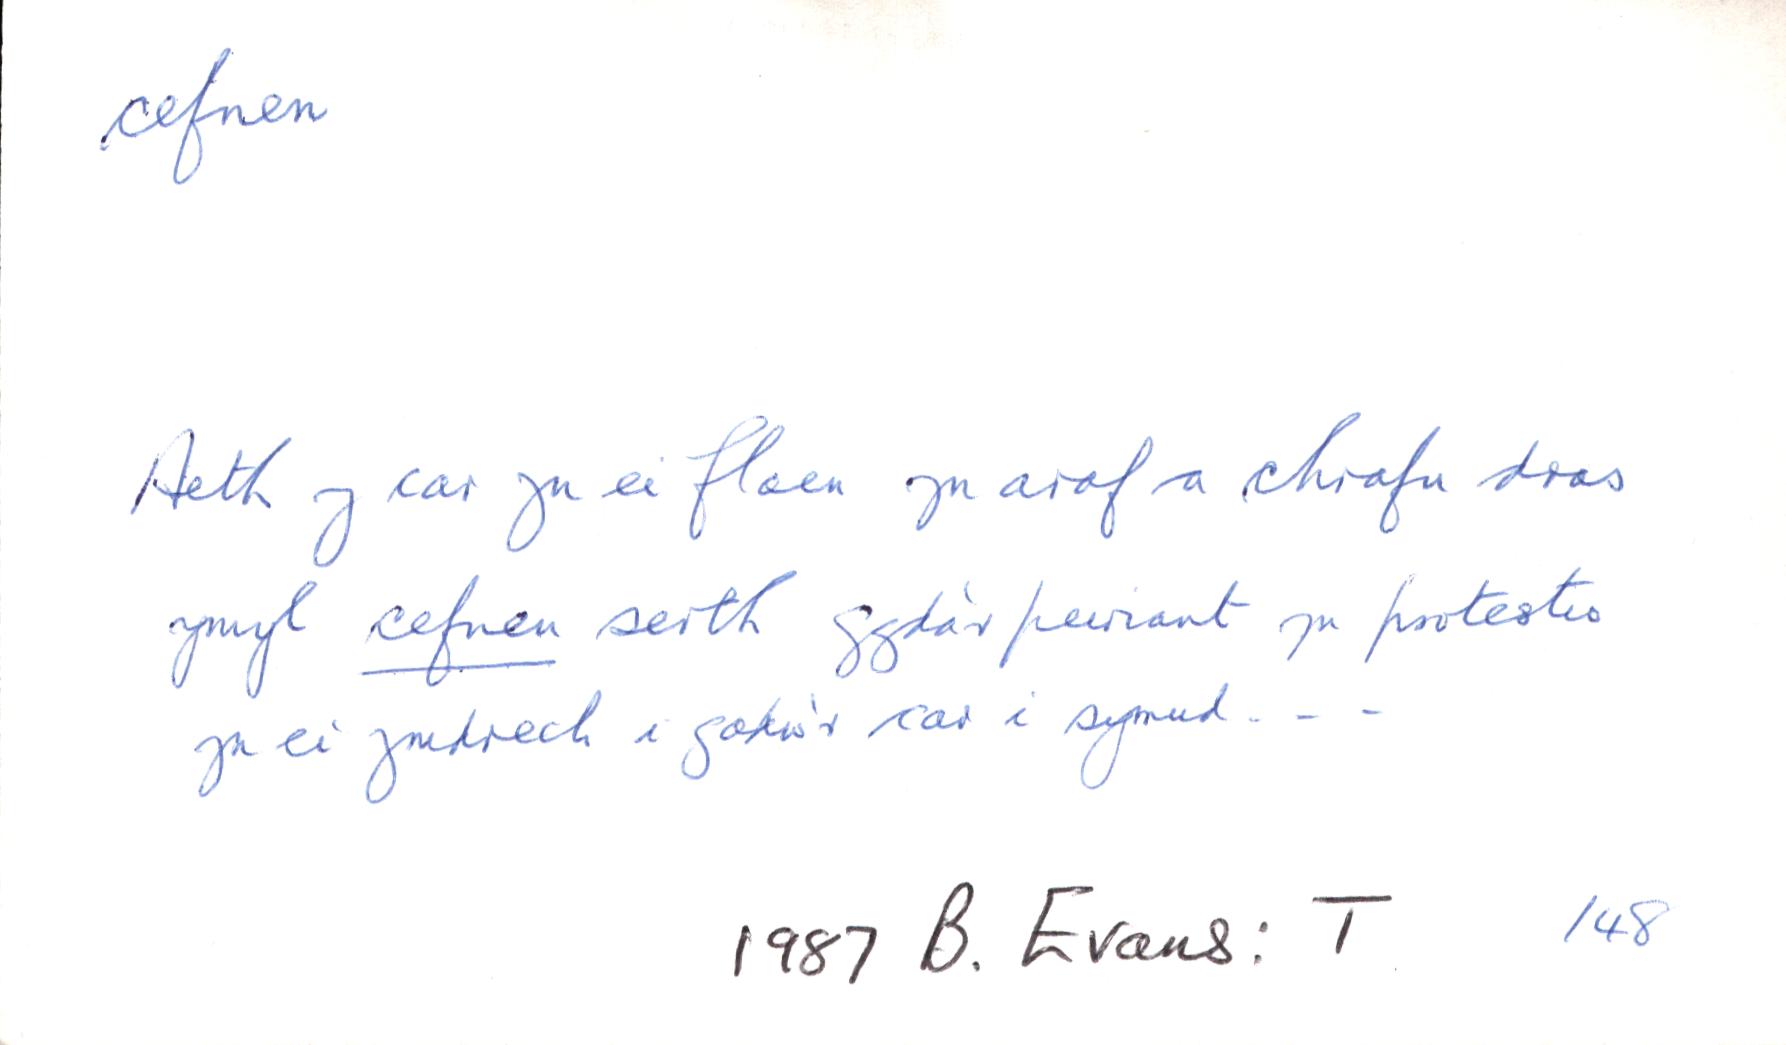 cefnen
Aeth y car yn ei flaen yn araf a chrafu dros
ymyl cefnen serth gyda'r peiriant yn protestio
yn ei ymdrech i gael i'r car i symud. - -
1987 B. Evans: T 148